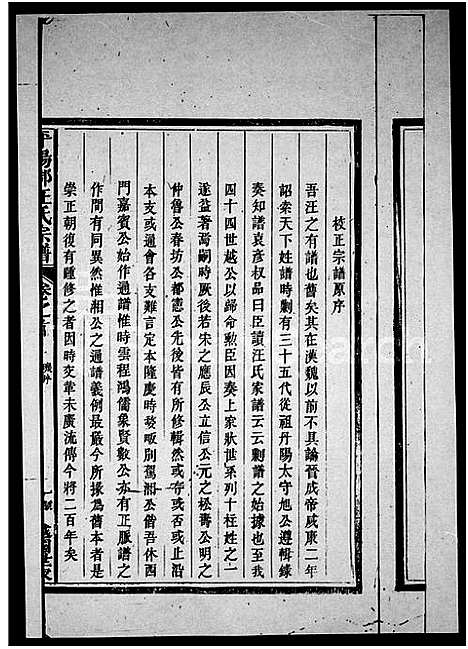 校正宗譜原序
吾汪之有譜也舊矣其在漢魏以前不具論晉成帝咸康二年
詔索天下姓譜時剩有三十五代從祖丹陽太守旭公遵輯錄
奏知譜袁彥权品曰臣讀汪氏家譜云云剩譜之始據也至我
四十四世越公以歸命勲臣因奏上家狀世系列十枉姓之一
遂益著焉嗣時厥後若宋之應辰公立信公元之松壽公明之
仲魯公春坊公都憲公先後皆有所修輯然或存或否或止沿
本支或通會各支難言定本隆慶時婺畈別駕湘公偕吾休西
門嘉賓公始作通譜惟時雲程鴻儒象賢數公亦有正脈譜之
作間有同異然惟湘公之通譜義例最嚴今所據為舊本者是
崇正朝復有踵修之者因時交革未廣流傳今將二百年矣
平陽郡汪氏宗譜
卷之首